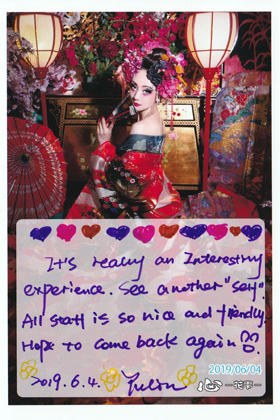 It's really an Interesting
experience. See another "self".
All staff is so nice and friendly.
Hope to come back again
2019.6.4. Yulin
2019/06/04
心 -花雫-